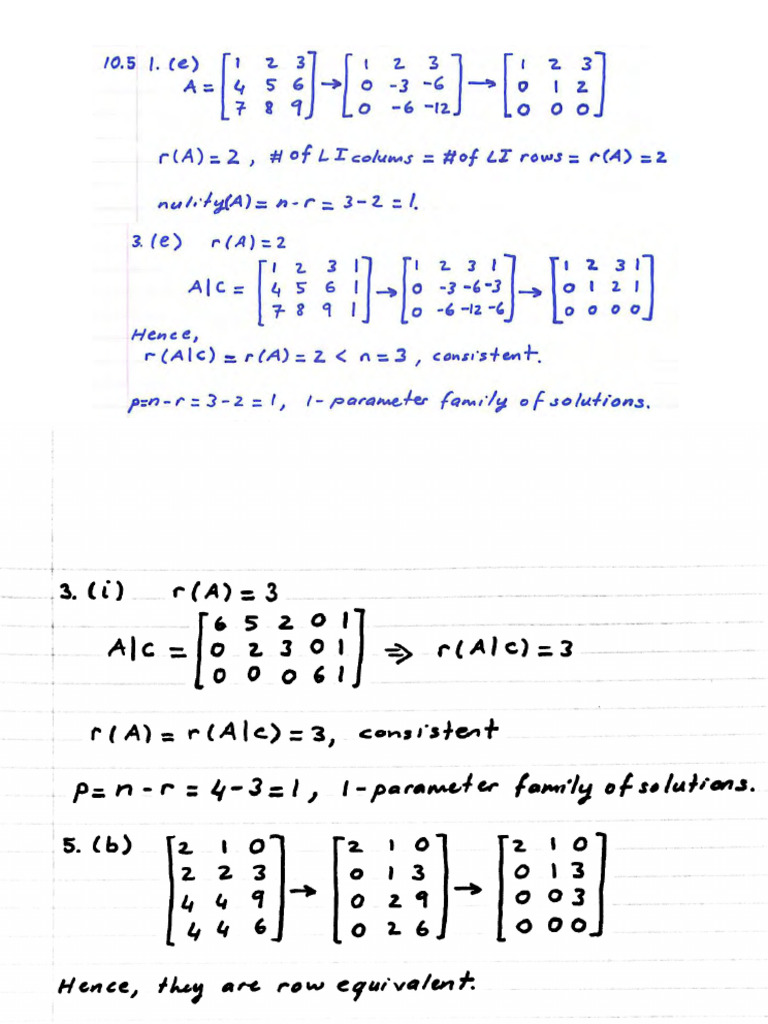 10.5 1. (e) A = [1 2 3; 4 5 6; 7 8 9] → [1 2 3; 0 -3 -6; 0 -6 -12] → [1 2 3; 0 1 2; 0 0 0]
r(A) = 2 , # of LI colums = # of LI rows = r(A) = 2
nulity(A) = n-r = 3-2 = 1.
3. (e) r(A) = 2
A|C = [1 2 3 1; 4 5 6 1; 7 8 9 1] → [1 2 3 1; 0 -3 -6 -3; 0 -6 -12 -6] → [1 2 3 1; 0 1 2 1; 0 0 0 0]
Hence,
r(A|c) = r(A) = 2 < n = 3 , consistent.
p=n-r = 3-2 = 1, 1-parameter family of solutions.
3. (i) r(A) = 3
A|C = [6 5 2 0 1; 0 2 3 0 1; 0 0 0 6 1] ⇒ r(A|c) = 3
r(A) = r(A|c) = 3, consistent
p = n-r = 4-3 = 1, 1-parameter family of solutions.
5. (b) [2 1 0; 2 2 3; 4 4 9; 4 4 6] → [2 1 0; 0 1 3; 0 2 9; 0 2 6] → [2 1 0; 0 1 3; 0 0 3; 0 0 0]
Hence, they are row equivalent.